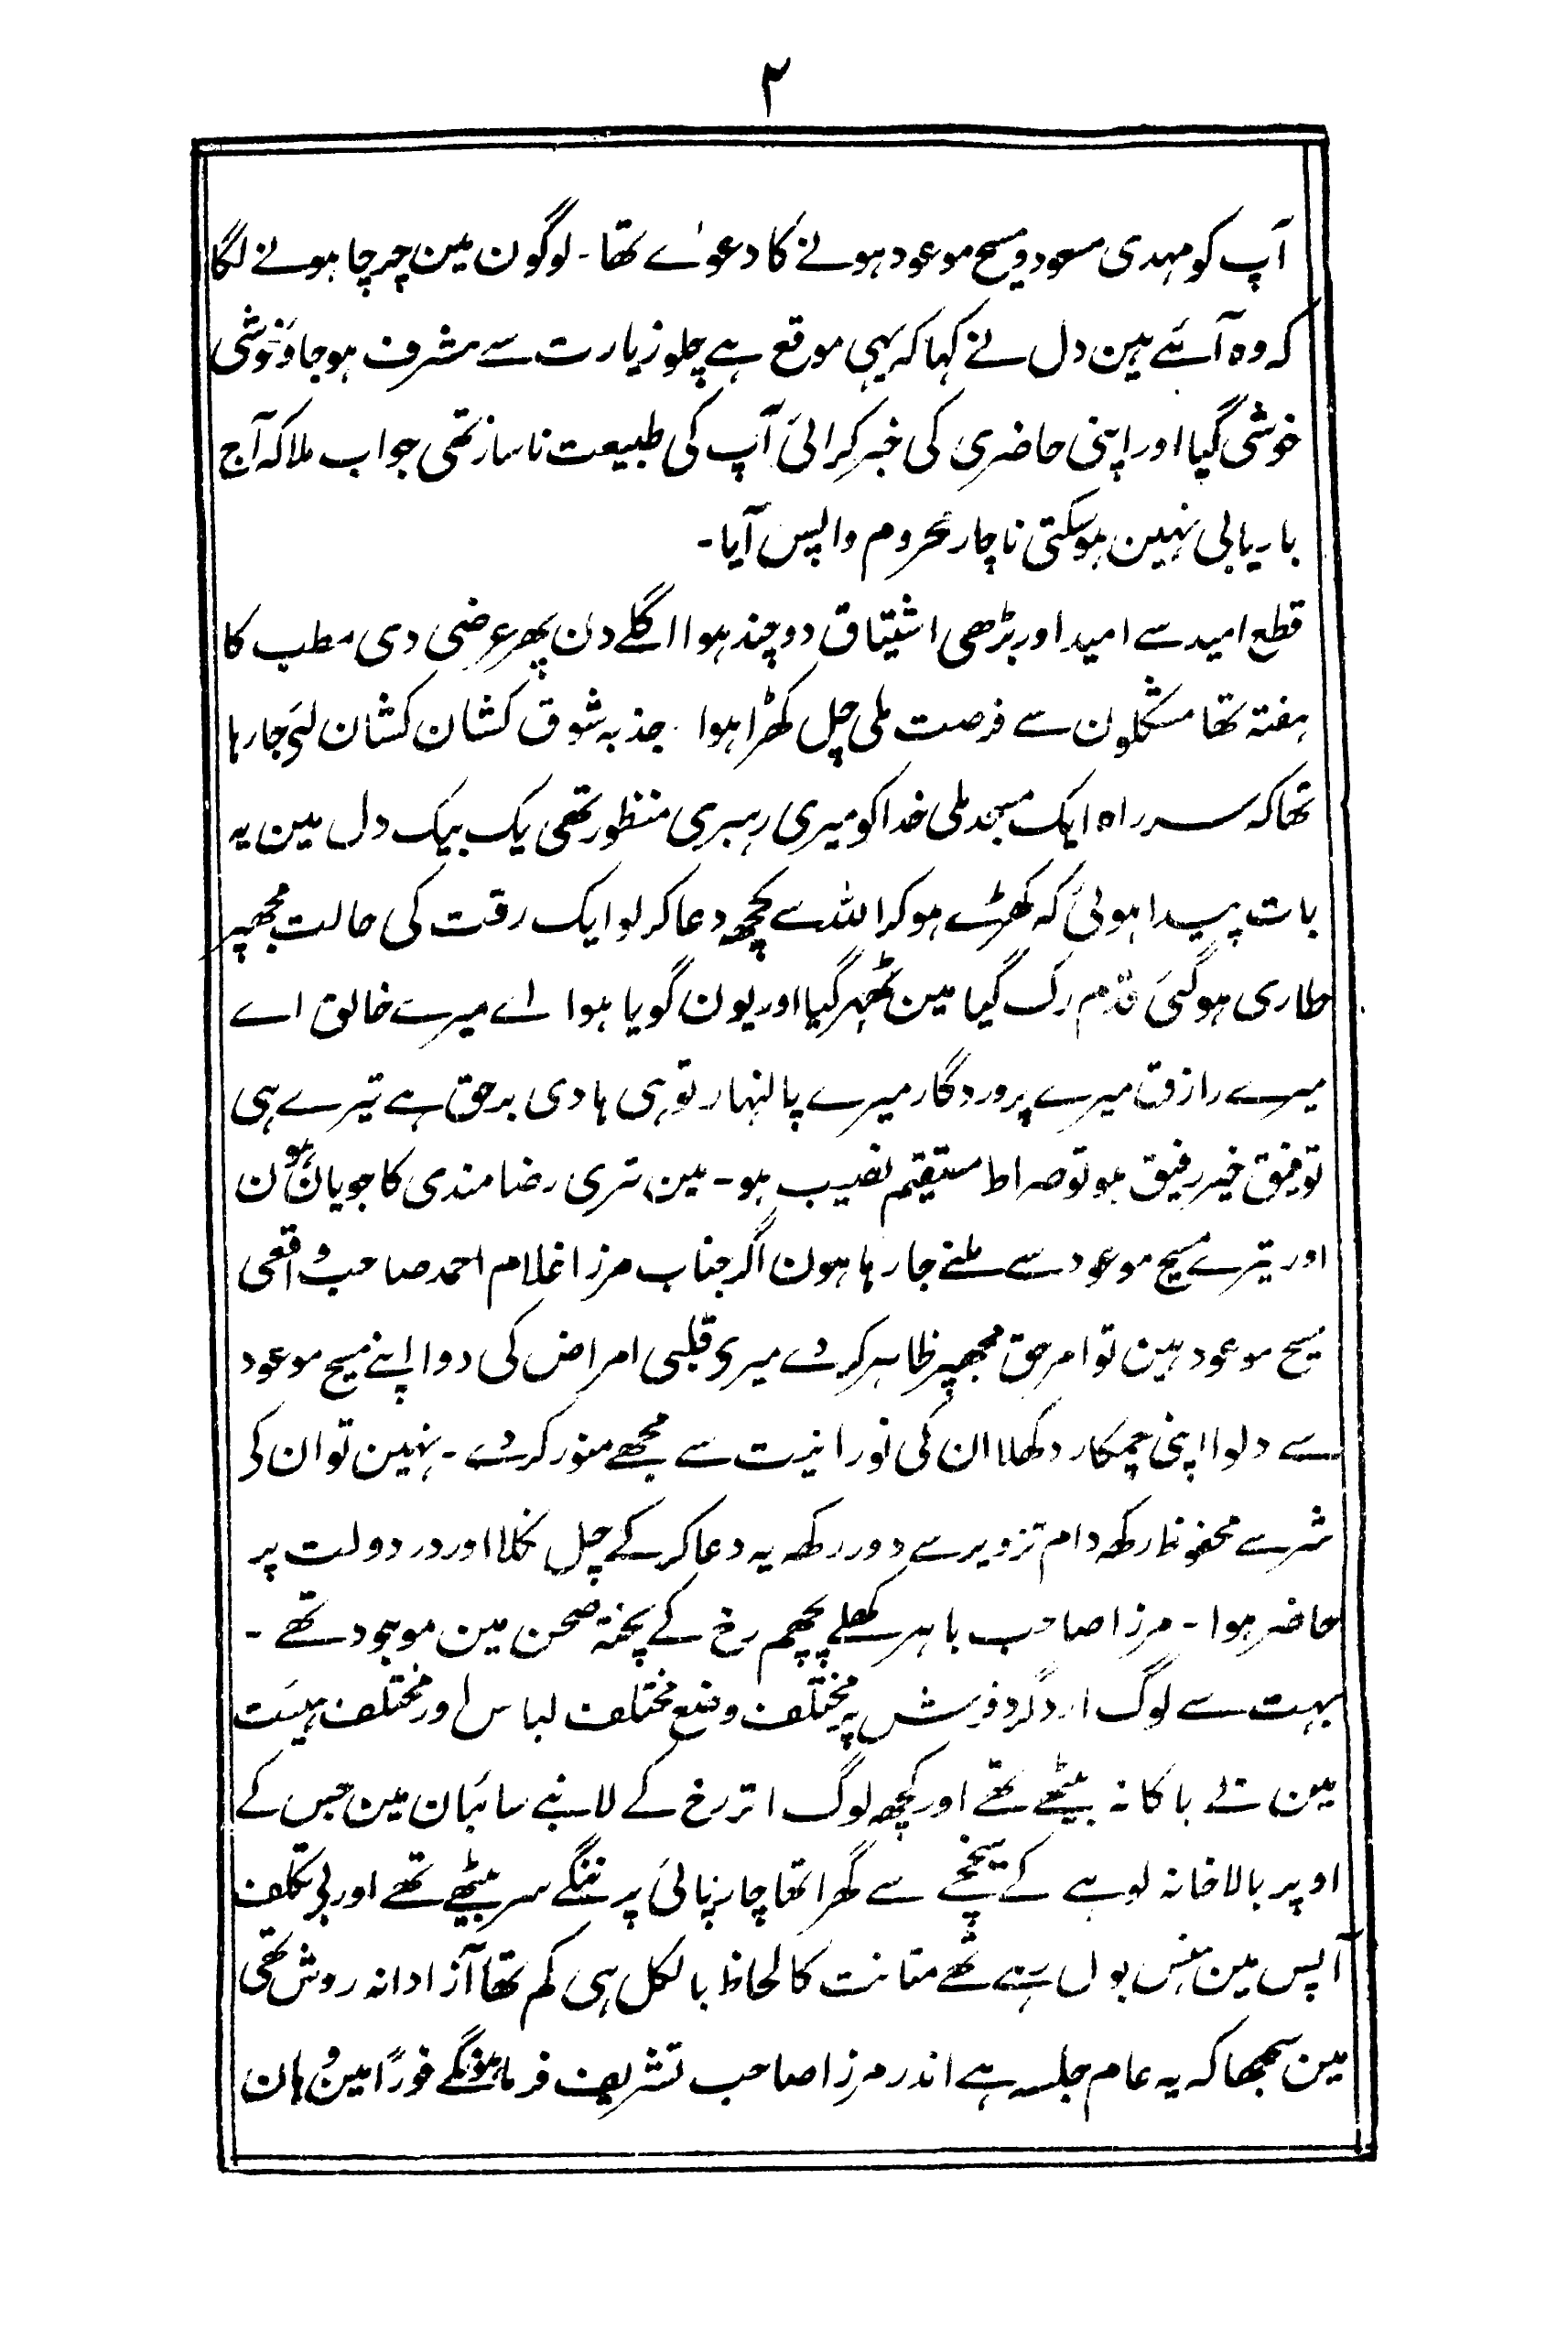 ۲
آپ کو مہدی مسعود و مسیح موعود ہونے کا دعوےٰ تھا۔ لوگون مین چرچا ہونے لگا
کہ وہ آئے ہین دل نے کہا کہ یہی موقع ہے چلو زیارت سے مشرف ہو جاؤ خوشی
خوشی گیا اور اپنی حاضری کی خبر کرائی آپ کی طبیعت ناساز تھی جواب ملا کہ آج
باریابی نہین ہو سکتی ناچار محروم واپس آیا۔
قطع امید سے امید اور بڑھی اشتیاق دوچند ہوا اگلے دن پھر عرضی دی مطب کا
ہفتہ تھا مشکلون سے فرصت ملی چل کھڑا ہوا۔ جذبہ شوق کشان کشان لئے جا رہا
تھا کہ سر راہ ایک مسجد ملی خدا کو میری رہبری منظور تھی یک بیک دل مین یہ
بات پیدا ہوئی کہ کھڑے ہو کر اللہ سے کچھ دعا کر لو ایک رقت کی حالت مجھپر
طاری ہو گئی قدم رک گیا مین ٹھہر گیا اور یون گویا ہوا اے میرے خالق اے
میرے رازق میرے پروردگار میرے پالنہار تو ہی ہادی برحق ہے تیرے ہی
توفیق خیر رفیق ہو تو صراط مستقیم نصیب ہو۔ مین تری رضامندی کا جویان ہون
اور تیرے مسیح موعود سے ملنے جا رہا ہون اگر جناب مرزا غلام احمد صاحب واقعی
مسیح موعود ہین تو امر حق مجھپر ظاہر کر دے میری قلبی امراض کی دوا اپنے مسیح موعود
سے دلوا اپنی چمکار دکھلا ان کی نورانیت سے مجھے منور کر دے۔ نہین تو ان کی
شر سے محفوظ رکھ دام تزویر سے دور رکھ یہ دعا کر کے چل نکلا اور در دولت پر
حاضر ہوا۔ مرزا صاحب باہر کھلے پچھم رخ کے پختہ صحن مین موجود تھے۔
بہت سے لوگ ارد گرد فرش پر مختلف وضع مختلف لباس اور مختلف ہیئت
مین بے باکانہ بیٹھے تھے اور کچھ لوگ اتر رخ کے لانبے سائبان مین جس کے
اوپر بالاخانہ لوہے کے سیخچے سے گھرا تھا چارپائی پر ننگے سر بیٹھے تھے اور بے تکلف
آپس مین ہنس بول رہے تھے متانت کا لحاظ بالکل ہی کم تھا آزادانہ روش تھی
مین سمجھا کہ یہ عام جلسہ ہے اندر مرزا صاحب تشریف فرما ہونگے فوراً مین وہان